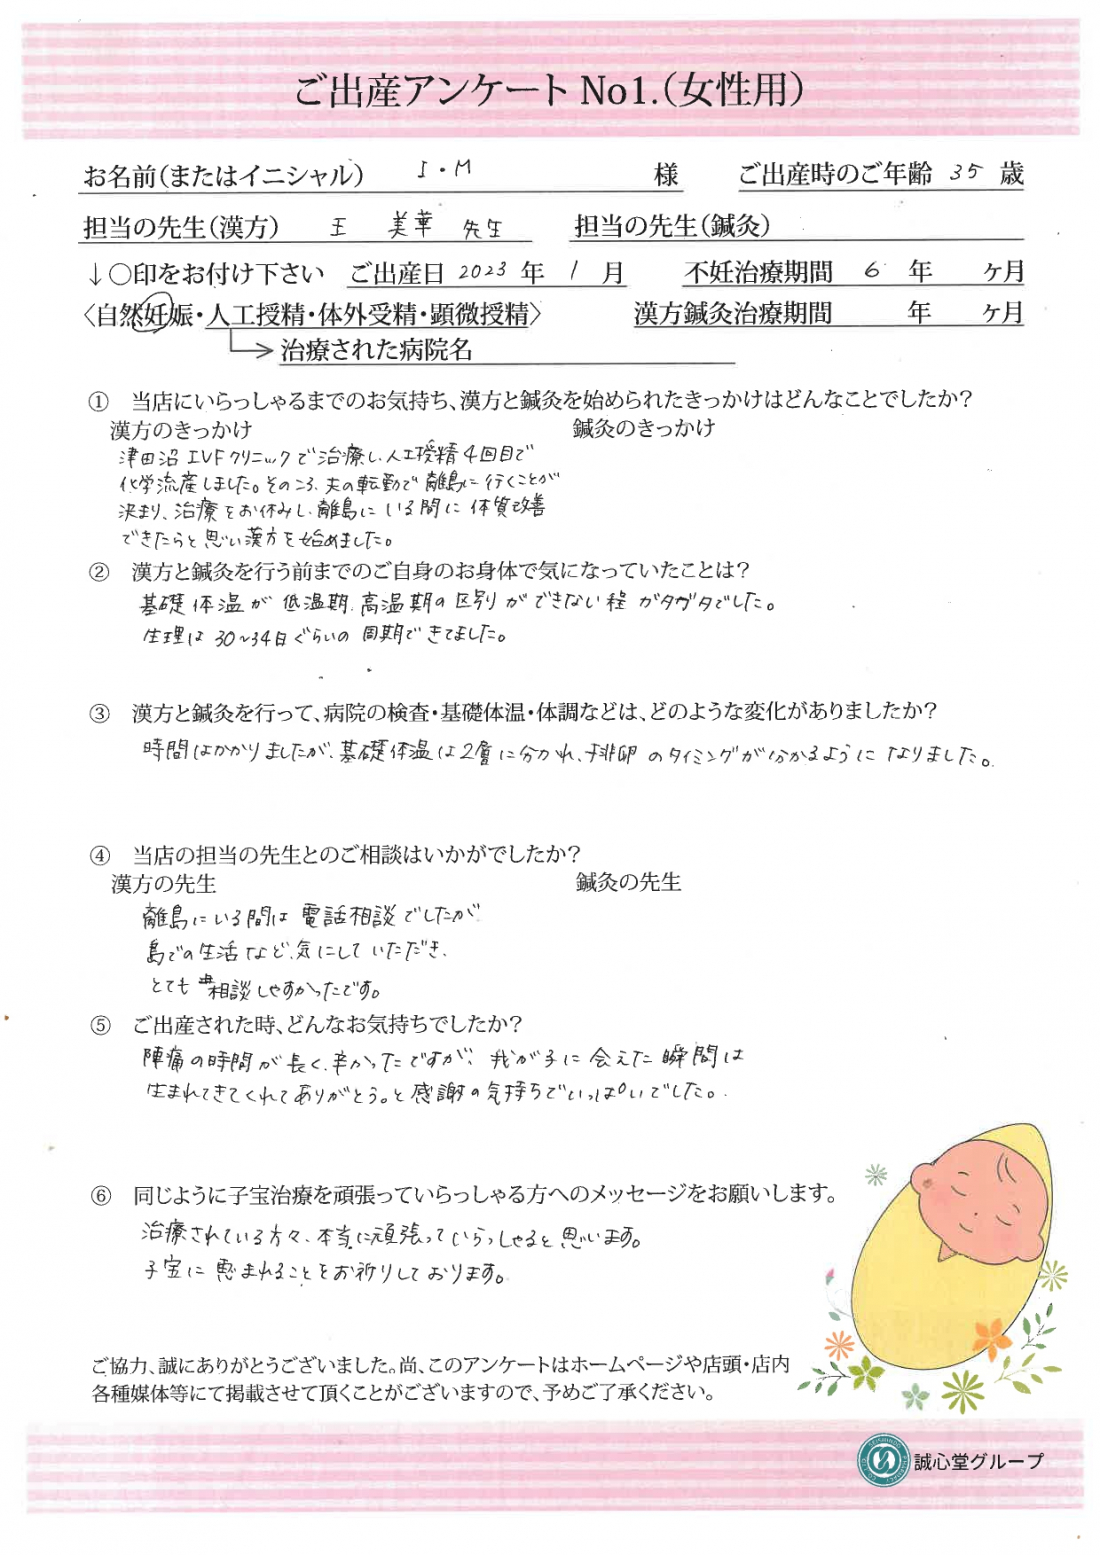 ご出産アンケート No1.(女性用)
お名前(またはイニシャル) I・M 様 ご出産時のご年齢 35 歳
担当の先生(漢方) 王 美華 先生 担当の先生(鍼灸)
↓○印をお付け下さい ご出産日 2023 年 1 月 不妊治療期間 6 年 ヶ月
〈自然妊娠・人工授精・体外受精・顕微授精〉 漢方鍼灸治療期間 年 ヶ月
治療された病院名
① 当店にいらっしゃるまでのお気持ち、漢方と鍼灸を始められたきっかけはどんなことでしたか?
漢方のきっかけ 鍼灸のきっかけ
津田沼IVFクリニックで治療し、人工授精4回目で
化学流産しました。そのころ、夫の転勤で離島に行くことが
決まり、治療をお休みし、離島にいる間に体質改善
できたらと思い漢方を始めました。
② 漢方と鍼灸を行う前までのご自身のお身体で気になっていたことは?
基礎体温が低温期、高温期の区別ができない程ガタガタでした。
生理は30~34日ぐらいの周期できてました。
③ 漢方と鍼灸を行って、病院の検査・基礎体温・体調などは、どのような変化がありましたか?
時間はかかりましたが、基礎体温は2層に分かれ、排卵のタイミングが分かるようになりました。
④ 当店の担当の先生とのご相談はいかがでしたか?
漢方の先生 鍼灸の先生
離島にいる間は電話相談でしたが
島での生活など、気にしていただき、
とても相談しやすかったです。
⑤ ご出産された時、どんなお気持ちでしたか?
陣痛の時間が長く、辛かったですが、我が子に会えた瞬間は
生まれてきてくれてありがとう。と感謝の気持ちでいっぱいでした。
⑥ 同じように子宝治療を頑張っていらっしゃる方へのメッセージをお願いします。
治療されている方々、本当に頑張っていらっしゃると思います。
子宝に恵まれることをお祈りしております。
ご協力、誠にありがとうございました。尚、このアンケートはホームページや店頭・店内
各種媒体等にて掲載させて頂くことがございますので、予めご了承ください。
誠心堂グループ